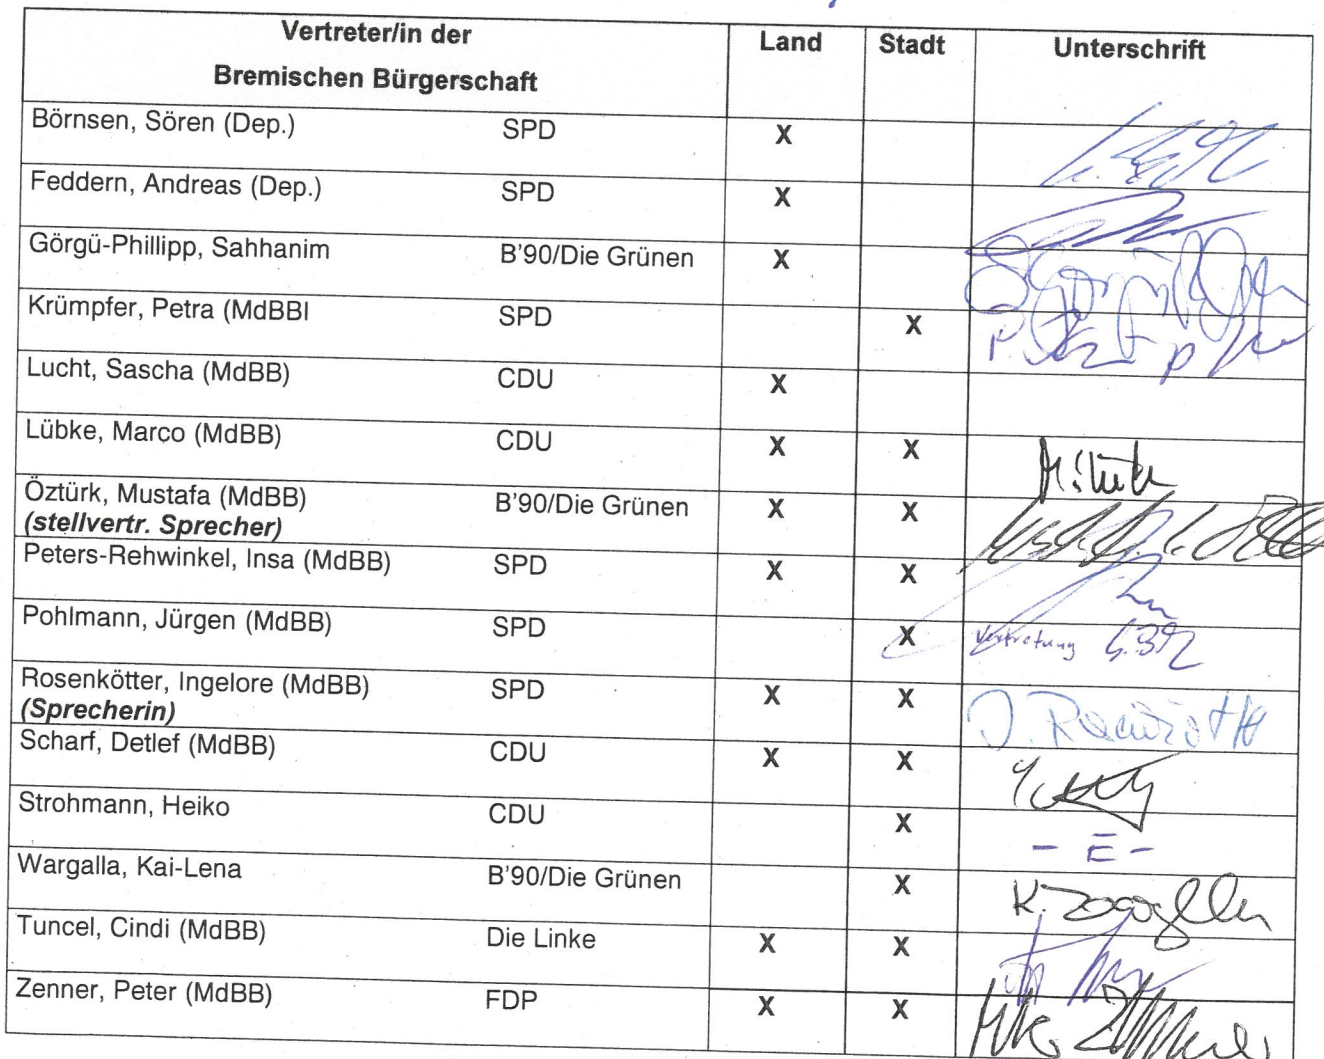 Vertreter/in der Land Stadt Unterschrift
Bremischen Bürgerschaft
Börnsen, Sören (Dep.) SPD X
Feddern, Andreas (Dep.) SPD X
Görgü-Phillipp, Sahhanim B'90/Die Grünen X
Krümpfer, Petra (MdBBI SPD X
Lucht, Sascha (MdBB) CDU X
Lübke, Marco (MdBB) CDU X X
Öztürk, Mustafa (MdBB) B'90/Die Grünen X X
(stellvertr. Sprecher)
Peters-Rehwinkel, Insa (MdBB) SPD X X
Pohlmann, Jürgen (MdBB) SPD X Vertretung
Rosenkötter, Ingelore (MdBB) SPD X X
(Sprecherin)
Scharf, Detlef (MdBB) CDU X X
Strohmann, Heiko CDU X - E -
Wargalla, Kai-Lena B'90/Die Grünen X
Tuncel, Cindi (MdBB) Die Linke X X
Zenner, Peter (MdBB) FDP X X